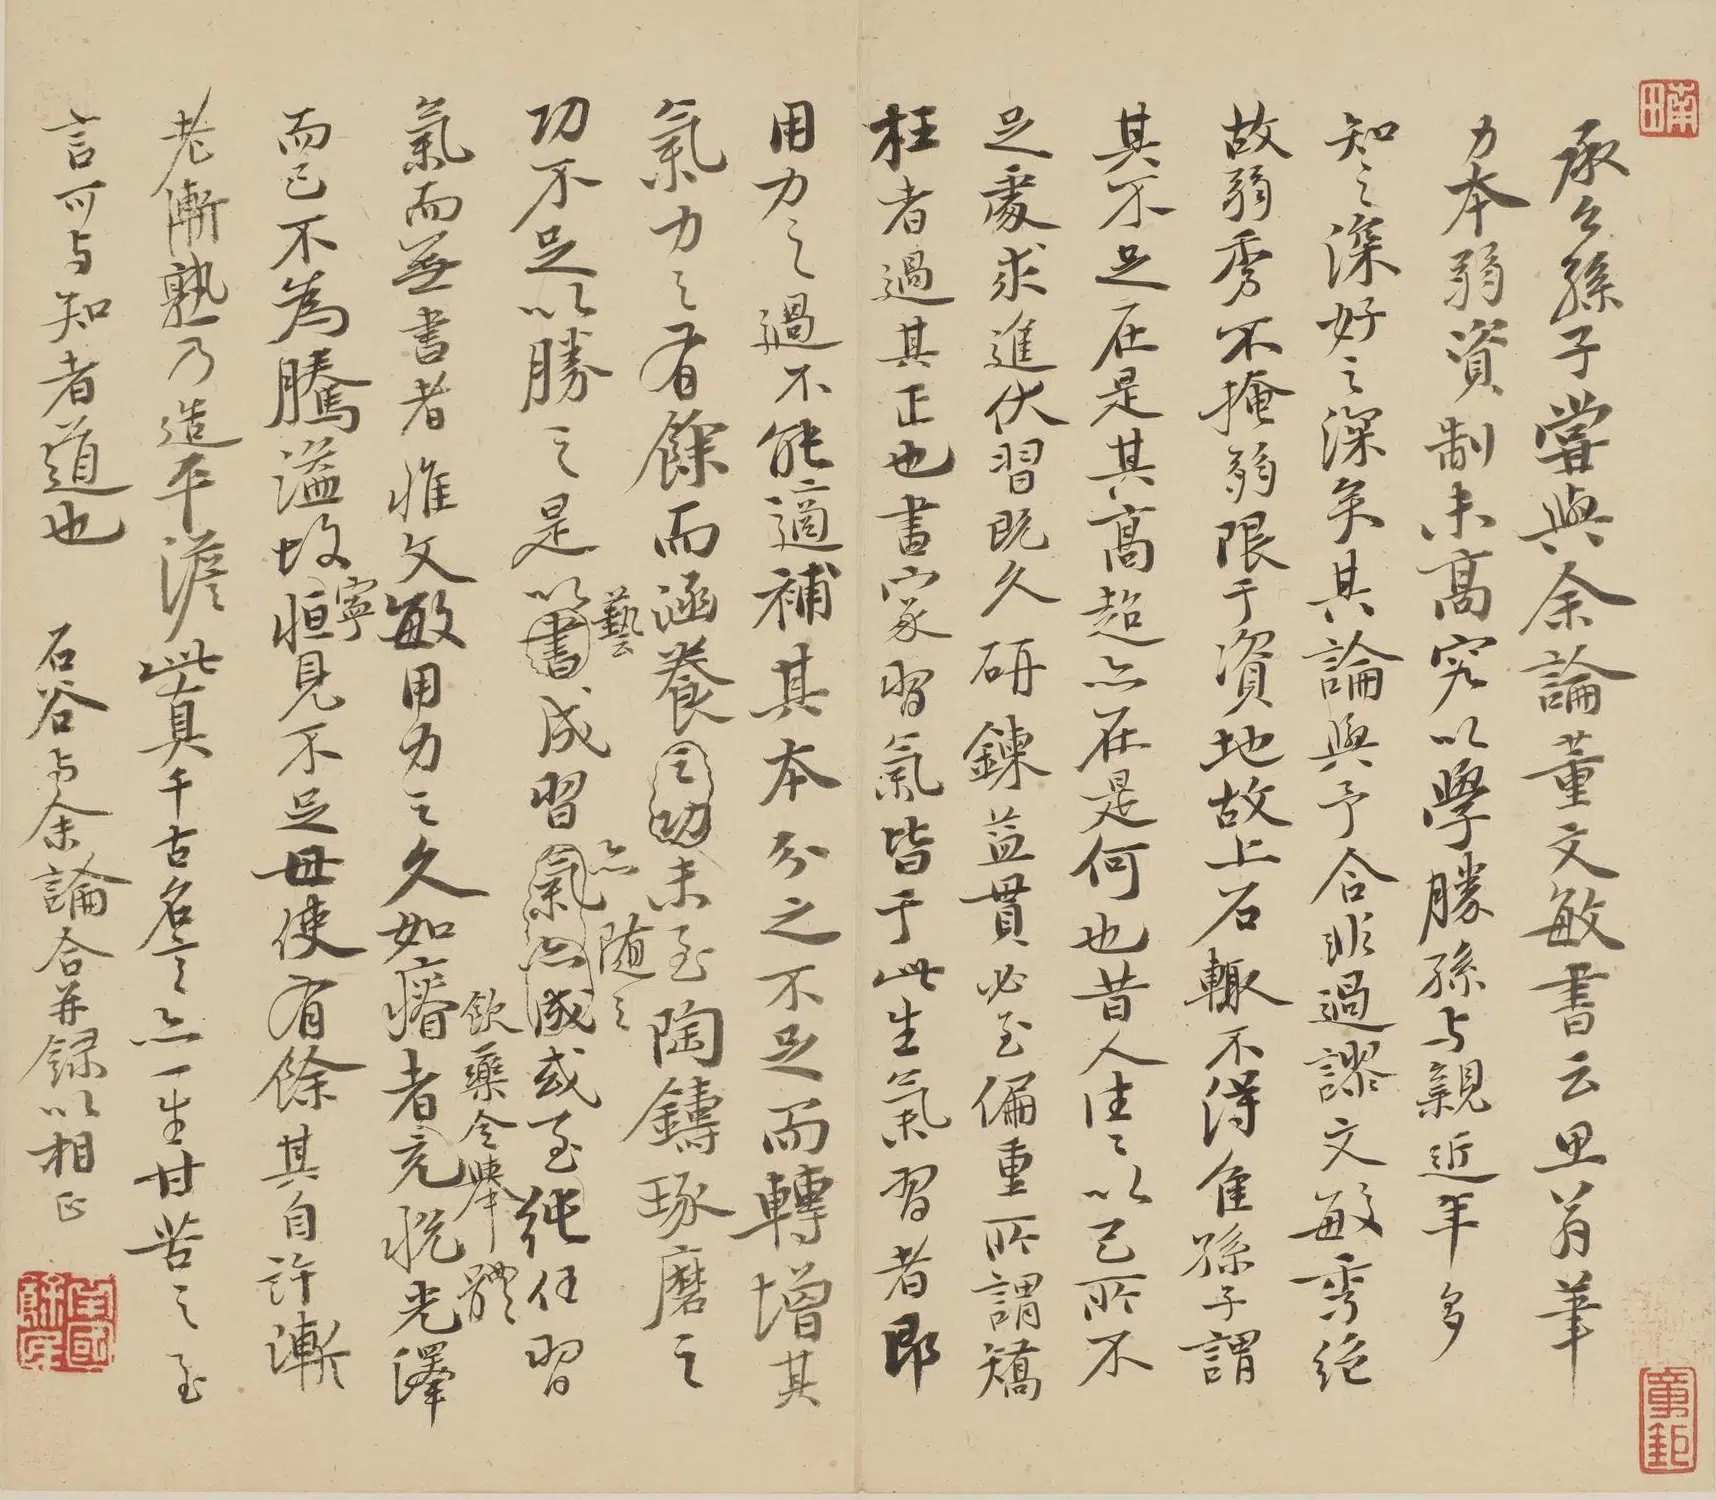 承公孫子嘗與余論董文敏書云思翁筆
力本弱資制未高究以學勝孫与親近年多
知之深好之深矣其論與予合非過謬文敏秀絶
故弱秀不掩弱限于資地故上石輙不得佳孫子謂
其不足在是其高超亦在是何也昔人往〻以己所不
足處求進伏習既久研鍊益貫必至偏重所謂矯
枉者過其正也書家習氣皆于此生氣習者即
用力之過不能適補其本分之不足而轉增其
氣力之有餘而涵養之功未至陶鑄琢磨之
功不足以勝之是以書藝成習氣亦成亦隨之或至純任習
氣而無書者惟文敏用力之久如瘠者飲藥令舉體充悦光澤
而已不為騰溢故寧恒見不足毋使有餘其自許漸
老漸熟乃造平澹此真千古名言亦一生甘苦之至
言可与知者道也
石谷与余論合并録以相正
南田